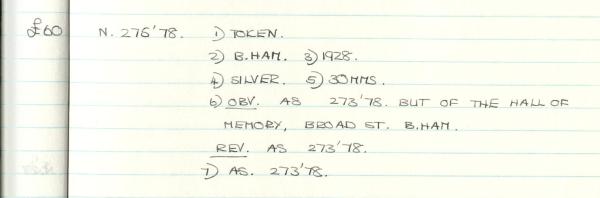 £60 N. 276'78. 1) TOKEN.
2) B.HAM. 3) 1928.
4) SILVER. 5) 30MMS.
6) OBV. AS 273'78. BUT OF THE HALL OF
MEMORY, BROAD ST. B.HAM.
REV. AS 273'78.
7) AS. 273'78.